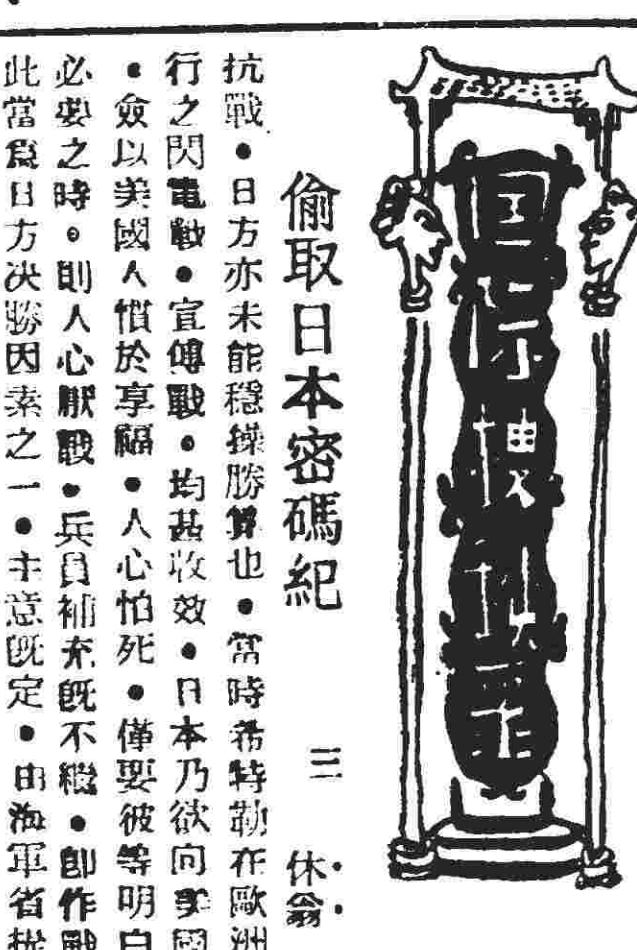 偷取日本密碼紀
三
休翁
抗戰•日方亦未能穩操勝算也•當時希特勒在歐洲
行之閃電戰•宣傳戰•均甚收效•日本乃欲向美國
•僉以美國人慣於享福•人心怕死•僅要彼等明白
必要之時。則人心厭戰•兵員補充既不繼•創作戰
此當爲日方决勝因素之一•主意既定•由海軍省